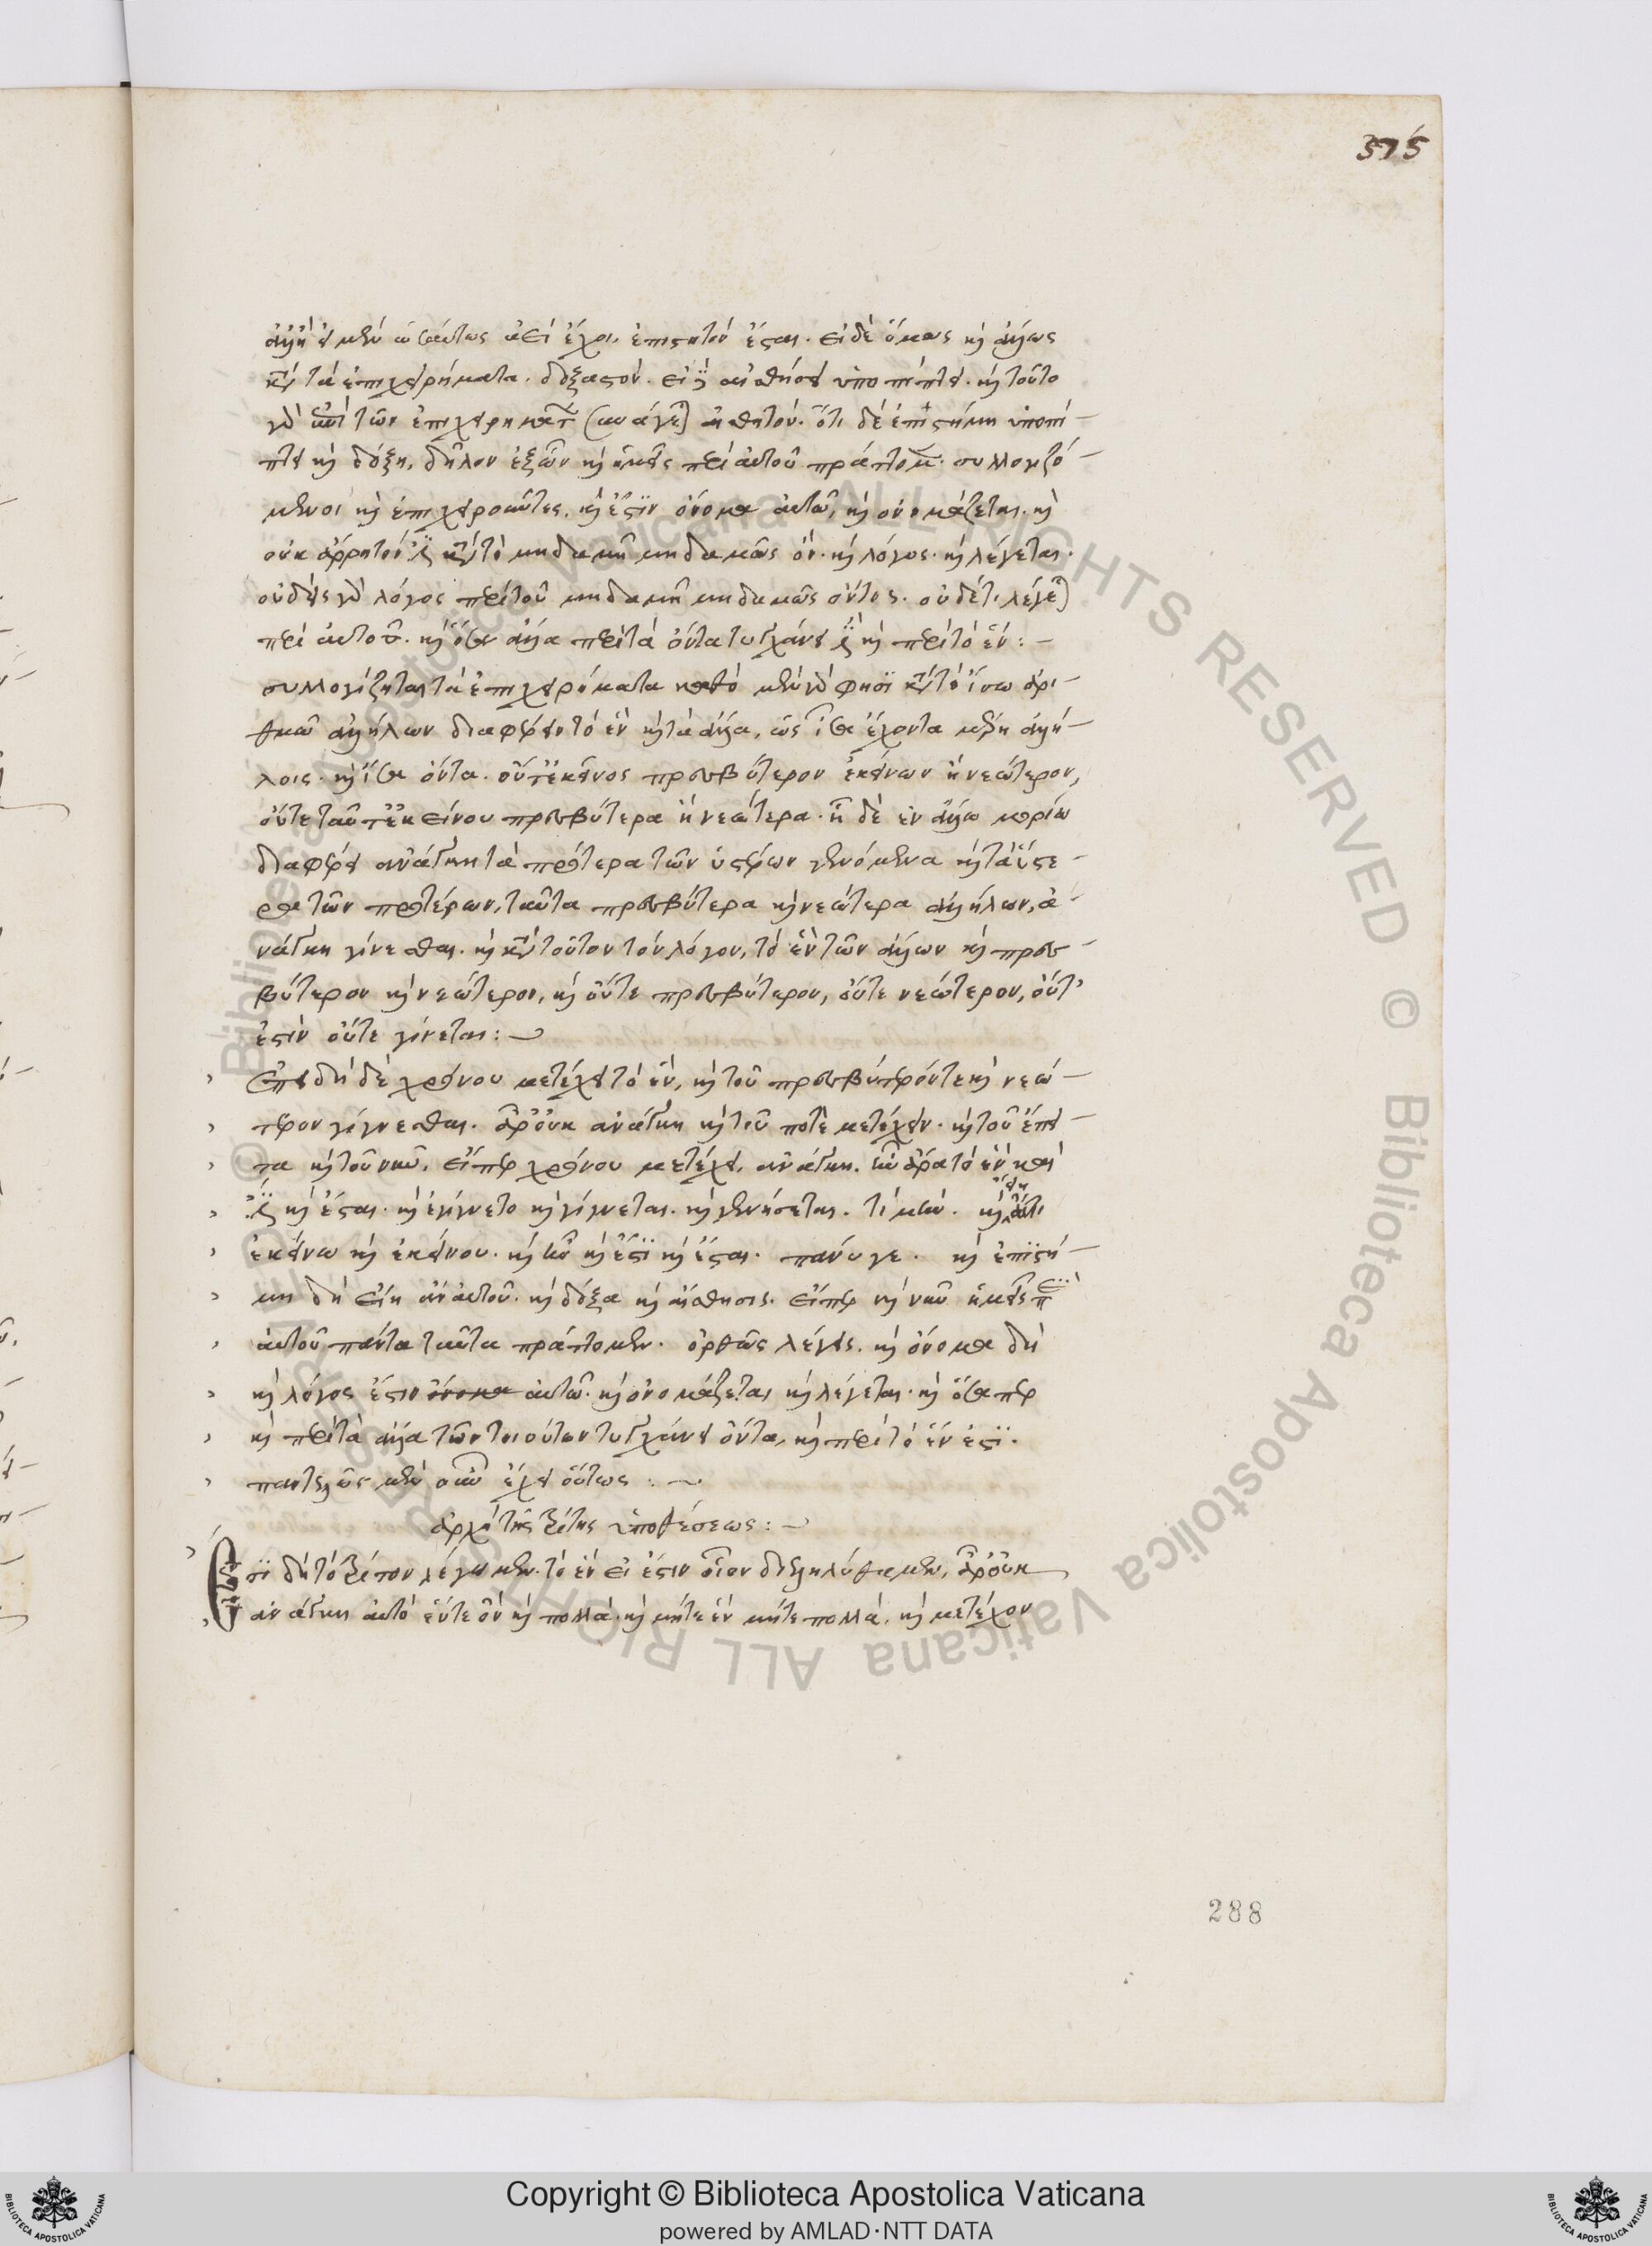 375
ἀλλ' εἰ μὲν ὡσαύτως ἀεὶ ἔχοι, ἐπιστητὸν ἔσται. εἰ δὲ ὅμως καὶ ἄλλως
κατὰ τὰ ἐπιχειρήματα. δοξαστόν. εἰ δὲ αἰσθήσει ὑποπίπτει. καὶ τοῦτο
γὰρ τῶν ἐπιχειρημάτων συνάγεται αἰσθητόν. ὅτι δὲ ἐπιστήμη ὑποπί-
πτει καὶ δόξῃ, δῆλον ἐξ ὧν καὶ ἡμεῖς περὶ αὐτοῦ πράττομεν. συλλογιζό-
μενοι καὶ ἐπιχειροῦντες. καὶ ἔστιν ὄνομα αὐτῷ, καὶ ὀνομάζεται. καὶ
οὐκ ἄρρητόν ἐστι κατὰ τὸ μηδαμῇ μηδαμῶς ὄν. καὶ λόγος. καὶ λέγεται.
οὐδεὶς γὰρ λόγος περὶ τοῦ μηδαμῇ μηδαμῶς ὄντος. οὐδέ τι λέγεται
περὶ αὐτοῦ. καὶ ὅσα ἄλλα περὶ τὰ ὄντα τυγχάνει ἐστὶ καὶ περὶ τὸ ἕν: –
συλλογίζηται τὰ ἐπιχειρήματα καθὸ μὲν γὰρ φησὶ κατὰ τὸ ἴσῳ ἀρι-
θμῷ ἀλλήλων διαφέρειν τὸ ἓν καὶ τὰ ἄλλα, ὡς ἴσα ἔχοντα μέρη ἀλλή-
λοις. καὶ ἴσα ὄντα. οὔτ' ἐκεῖνος πρεσβύτερον ἐκείνων ἢ νεώτερον,
οὔτε ταῦτ' ἐκείνου πρεσβύτερα ἢ νεώτερα. ᾗ δὲ ἐν ἄλλῳ μορίῳ
διαφέρει ἀνάγκη τὰ πρότερα τῶν ὑστέρων γενόμενα καὶ τὰ ὕστε-
ρα τῶν προτέρων, ταῦτα πρεσβύτερα καὶ νεώτερα ἀλλήλων, ἀ-
νάγκη γίνεσθαι. καὶ κατὰ τοῦτον τὸν λόγον, τὸ ἓν τῶν ἄλλων καὶ πρεσ-
βύτερον καὶ νεώτερον, καὶ οὔτε πρεσβύτερον, οὔτε νεώτερον, οὔτ'
ἐστὶν οὔτε γίνεται: –
Ἐπειδὴ δὲ χρόνου μετέχει τὸ ἕν, καὶ τοῦ πρεσβύτερόν τε καὶ νεώ-
τερον γίγνεσθαι. ἆρ' οὐκ ἀνάγκη καὶ τοῦ ποτὲ μετέχειν. καὶ τοῦ ἔπει-
τα καὶ τοῦ νῦν. εἴπερ χρόνου μετέχει. ἀνάγκη. ἦν ἄρα τὸ ἓν καὶ
ἔστι καὶ ἔσται. καὶ ἐγίγνετο καὶ γίγνεται. καὶ γενήσεται. τί μήν. καὶ εἴη ἄν τι
ἐκείνῳ καὶ ἐκείνου. καὶ ἦν καὶ ἔστι καὶ ἔσται. πάνυ γε. καὶ ἐπιστή-
μη δὴ εἴη ἂν αὐτοῦ. καὶ δόξα καὶ αἴσθησις. εἴπερ καὶ νῦν ἡμεῖς περὶ
αὐτοῦ πάντα ταῦτα πράττομεν. ὀρθῶς λέγεις. καὶ ὄνομα δὴ
καὶ λόγος ἔστιν ὄνομα αὐτῷ. καὶ ὀνομάζεται καὶ λέγεται. καὶ ὅσαπερ
καὶ περὶ τὰ ἄλλα τῶν τοιούτων τυγχάνει ὄντα, καὶ περὶ τὸ ἕν ἐστι.
παντελῶς μὲν οὖν ἔχει οὕτως: –
ἀρχὴ τῆς τρίτης ὑποθέσεως: –
Ἔτι δὴ τὸ τρίτον λέγωμεν. τὸ ἓν εἰ ἔστιν οἷον διεληλύθαμεν, ἆρ' οὐκ
ἀνάγκη αὐτὸ ἕν τε ὂν καὶ πολλά. καὶ μήτε ἓν μήτε πολλά. καὶ μετέχον
288